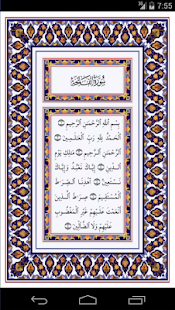 7:55
سُورَةُ الفَاتِحَةِ
بِسْمِ ٱللَّهِ ٱلرَّحْمَٰنِ ٱلرَّحِيمِ ۝
ٱلْحَمْدُ لِلَّهِ رَبِّ ٱلْعَٰلَمِينَ ۝
ٱلرَّحْمَٰنِ ٱلرَّحِيمِ ۝ مَٰلِكِ يَوْمِ
ٱلدِّينِ ۝ إِيَّاكَ نَعْبُدُ وَإِيَّاكَ
نَسْتَعِينُ ۝ ٱهْدِنَا ٱلصِّرَٰطَ
ٱلْمُسْتَقِيمَ ۝ صِرَٰطَ ٱلَّذِينَ
أَنْعَمْتَ عَلَيْهِمْ غَيْرِ ٱلْمَغْضُوبِ
عَلَيْهِمْ وَلَا ٱلضَّآلِّينَ ۝